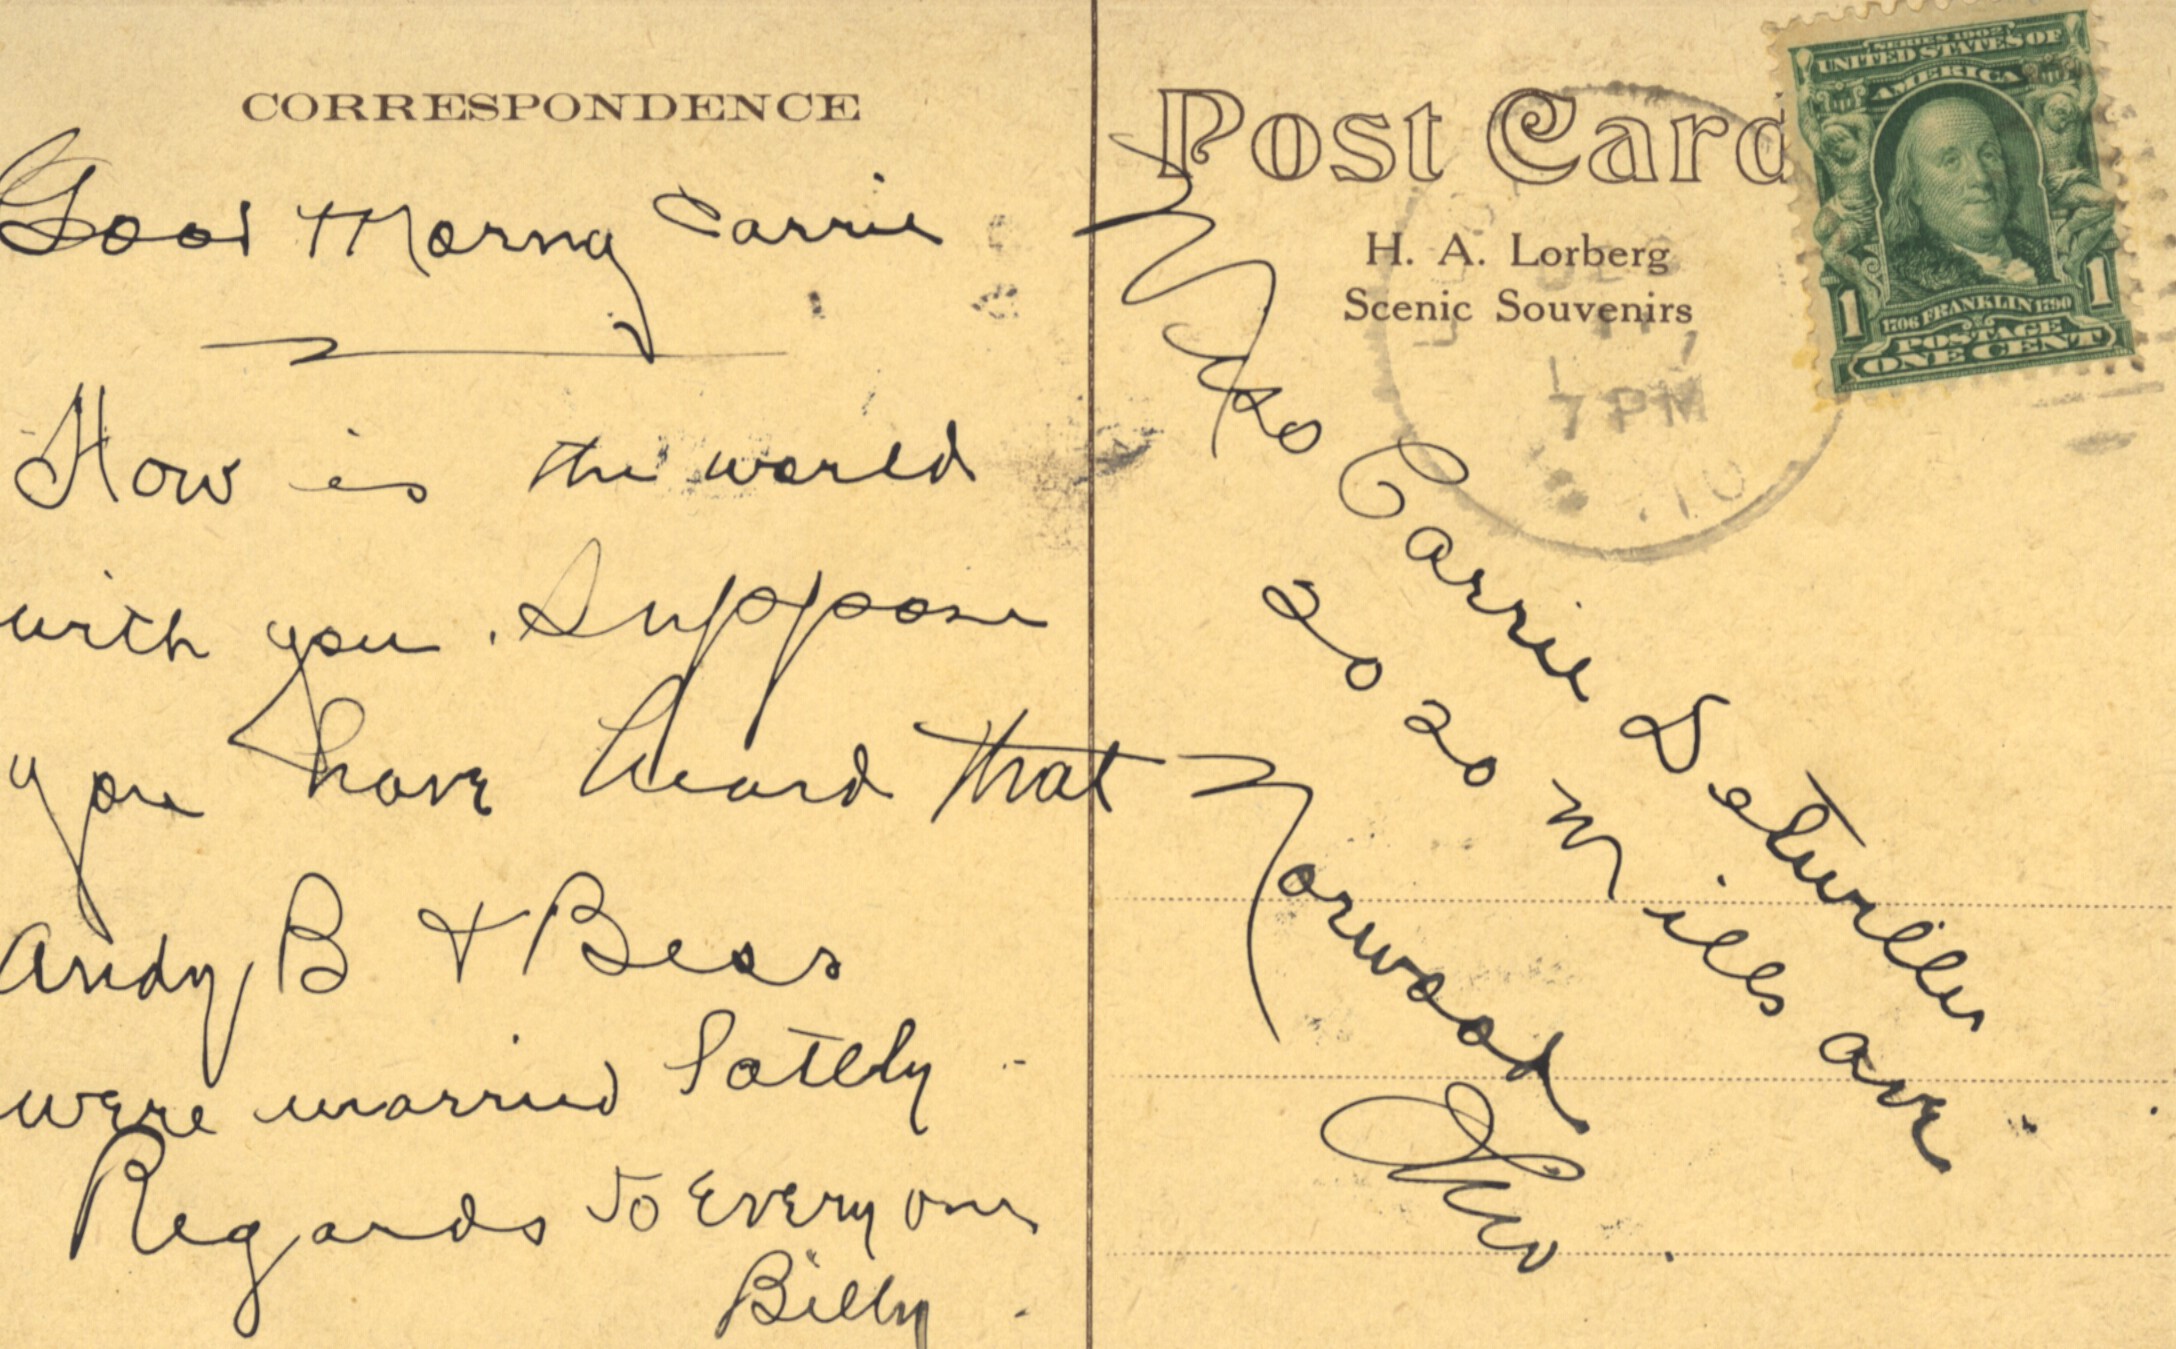 CORRESPONDENCE
Good Morng Carrie
How is the world
with you. Suppose
you have heard that
Andy B & Bess
were married lately
Regards to Every one
Billy
Post Card
H. A. Lorberg
Scenic Souvenirs
SERIES 1902
UNITED STATES OF
AMERICA
1 1
1706 FRANKLIN 1790
POSTAGE
ONE CENT
7 PM
Miss Carrie
2020 Mills ave
Norwood
Ohio